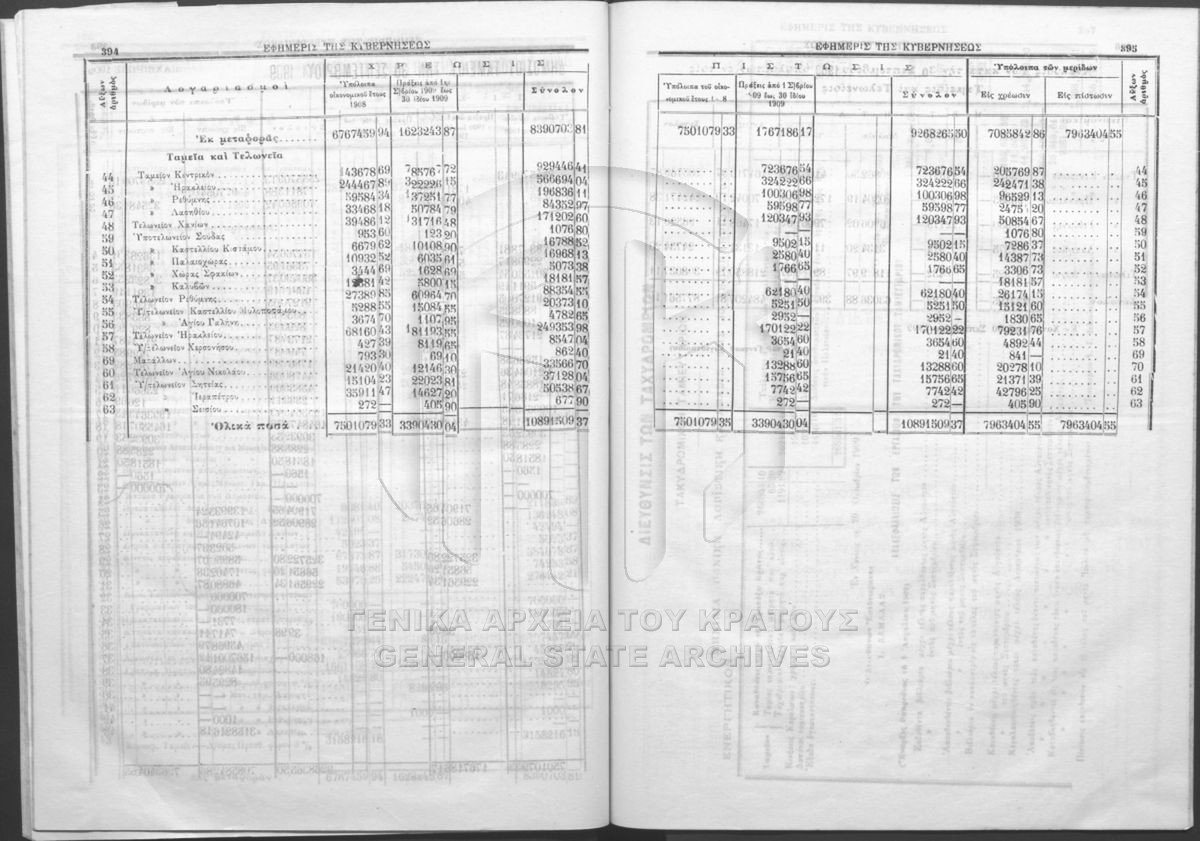 394 ΕΦΗΜΕΡΙΣ ΤΗΣ ΚΥΒΕΡΝΗΣΕΩΣ
Αὔξων ἀριθμός
Λογαριασμοὶ
ΧΡΕΩΣΙΣ
Ὑπόλοιπα οἰκονομικοῦ ἔτους 1908
Σύνολον
Ἐκ μεταφορᾶς 6767459 94 1623243 87 8390703 81
Ταμεῖα καὶ Τελωνεῖα
44 Ταμεῖον Κεντρικόν 929446 41
45 » Ἡρακλείου 244467 89 322226 15 566694 04
46 » Ρεθύμνης 59584 34 137251 77 196836 11
47 » Λασηθίου 33468 18 50784 79 84352 97
48 Τελωνεῖον Χανίων 39486 12 131716 48 171202 60
59 Ὑποτελωνεῖον Σούδας 953 60 123 20 1076 80
50 » Καστελλίου Κισάμου 6679 62 10108 90 16788 52
51 » Παλαιοχώρας 10932 52 6035 61 16968 13
52 » Χώρας Σφακίων 3444 69 1628 69 5073 38
53 » Καλυβῶν 42 5800 15 18181 57
54 Τελωνεῖον Ρεθύμνης 27389 85 60964 70 88354 55
55 Ὑποτελωνεῖον Καστελλίου Μυλοποτάμου 5288 55 15084 55 20373 10
56 » Ἁγίου Γαλήνη 3674 70 1107 95 4782 65
57 Τελωνεῖον Ἡρακλείου 68160 43 181193 55 249353 98
58 Ὑποτελωνεῖον Χερσονήσου 427 39 8119 65 8547 04
69 Ματάλλων 793 30 69 10 862 40
60 Τελωνεῖον Ἁγίου Νικολάου 21420 40 12146 30 33566 70
61 Ὑποτελωνεῖον Σητείας 15104 23 22023 81 37128 04
62 » Ἱεραπέτρου 35911 47 14627 20 50538 67
63 » 272 — 405 90 677 90
Ὁλικὰ ποσὰ 7501079 33 3390430 04 10891509 37
ΕΦΗΜΕΡΙΣ ΤΗΣ ΚΥΒΕΡΝΗΣΕΩΣ 395
ΠΙΣΤΩΣΙΣ
Σύνολον
Ὑπόλοιπα τῶν μερίδων
Εἰς χρέωσιν Εἰς πίστωσιν
Αὔξων ἀριθμός
7501079 33 1767186 17 9268265 50 7085842 86 7963404 55
723676 54 723676 54 205769 87 44
324222 66 324222 66 242471 38 45
100306 98 100306 98 96529 13 46
59598 77 59598 77 20 47
120347 93 120347 93 50854 67 48
— — 1076 80 59
9502 15 9502 15 7286 37 50
2580 40 2580 40 14387 73 51
1766 65 1766 65 3306 73 52
— — 18181 57 53
62180 40 62180 40 26174 15 54
5251 50 5251 50 15121 60 55
2952 — 2952 — 1830 65 56
170122 22 170122 22 79231 76 57
3654 60 3654 60 4892 44 58
21 40 21 40 841 — 69
13288 60 13288 60 20278 10 70
15756 65 15756 65 21371 39 61
7742 42 7742 42 42796 25 62
272 — 272 — 405 90 63
7501079 35 3390430 04 10891509 37 7963404 55 7963404 55
ΓΕΝΙΚΑ ΑΡΧΕΙΑ ΤΟΥ ΚΡΑΤΟΥΣ
GENERAL STATE ARCHIVES